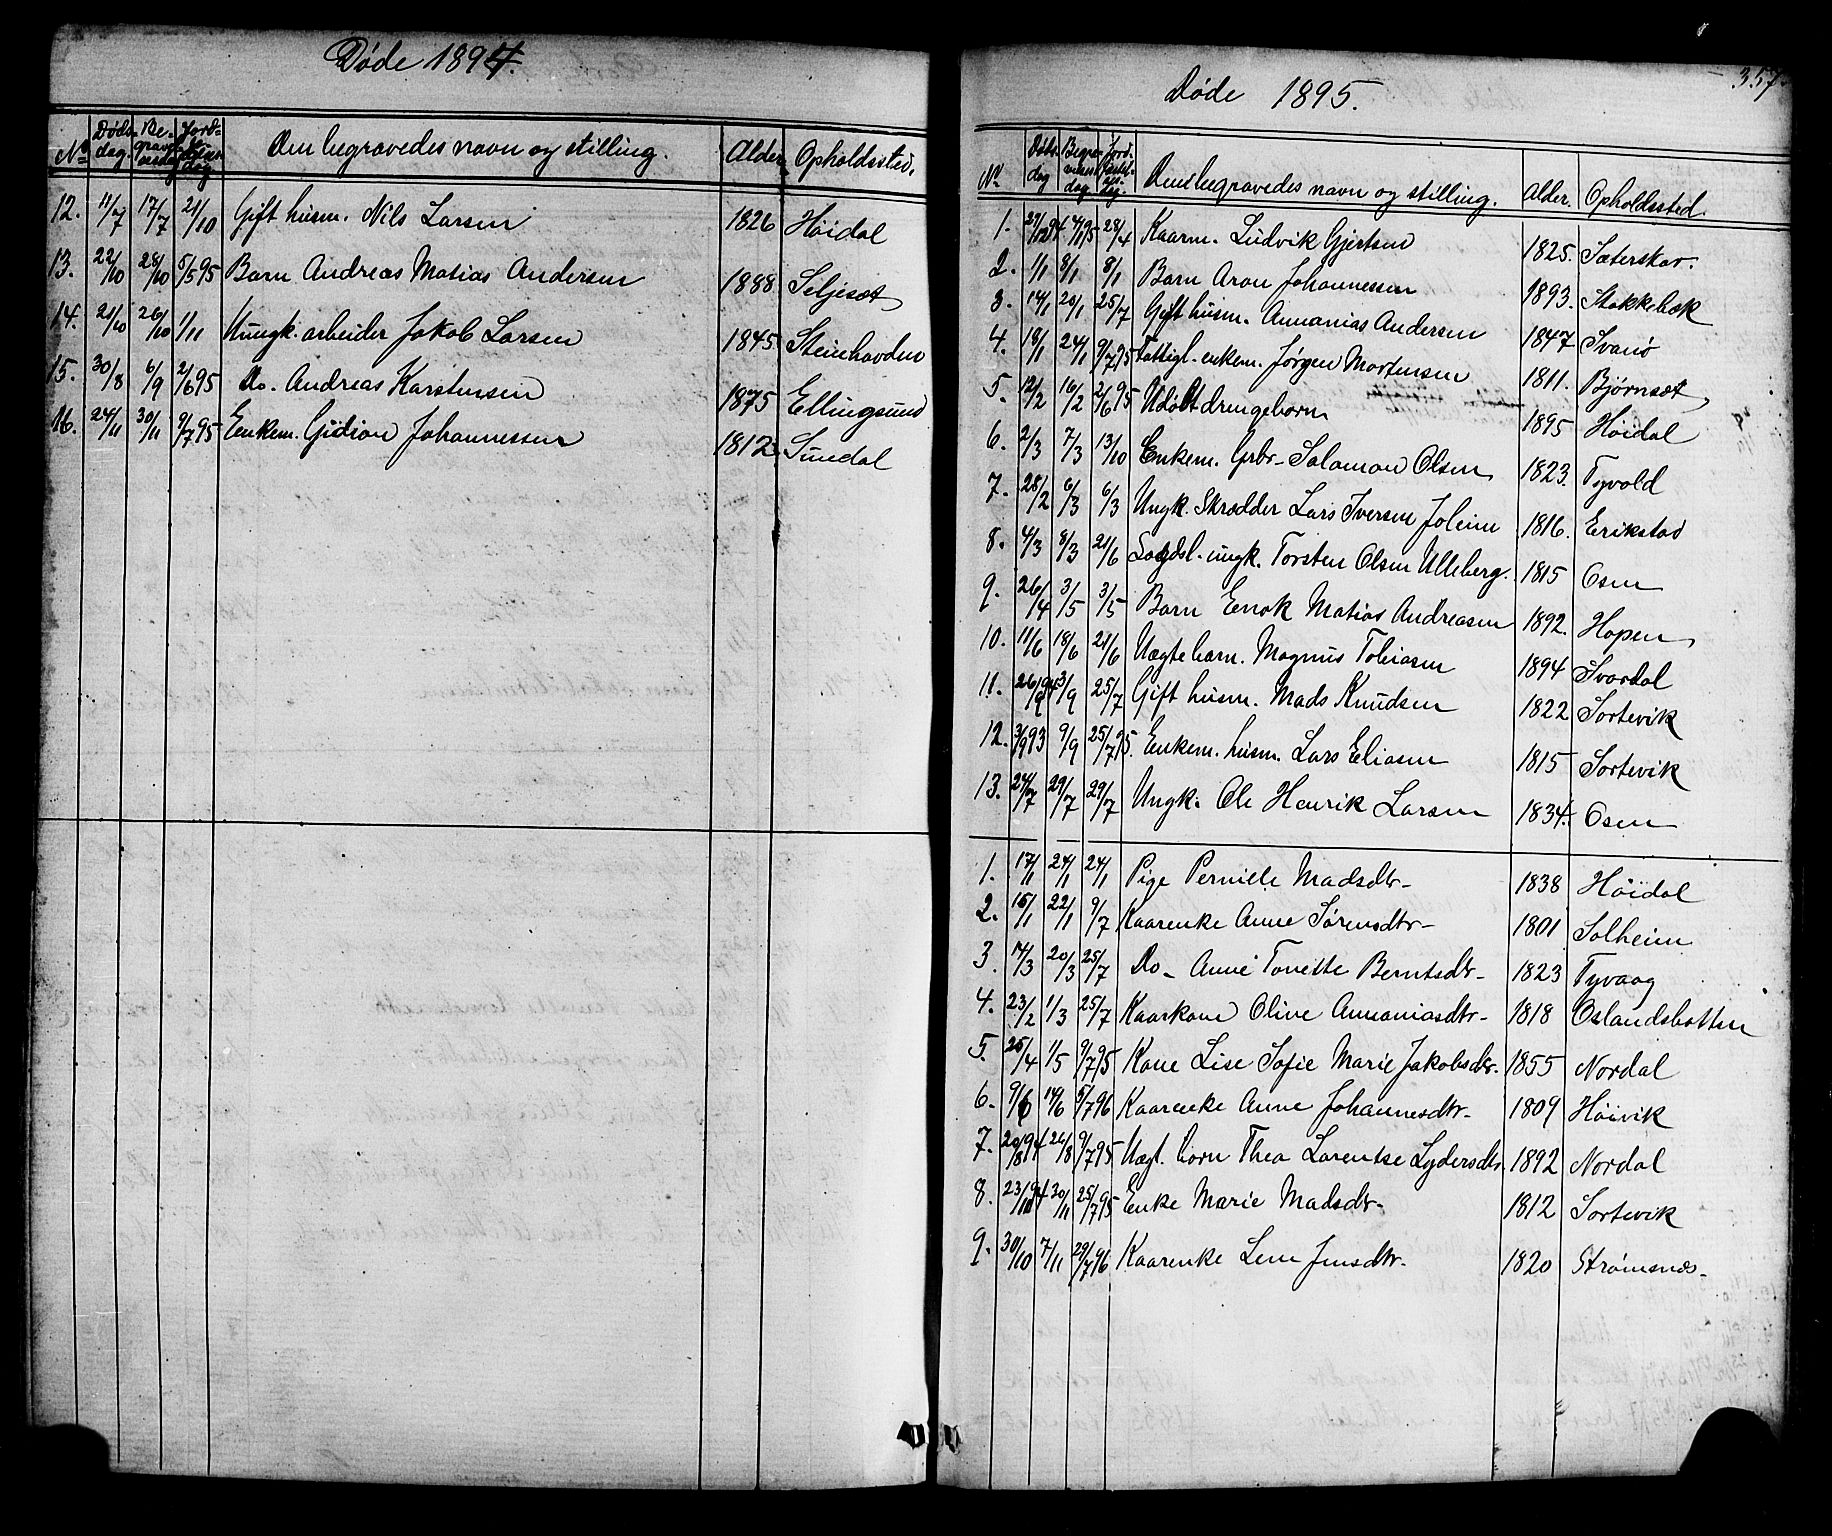 Døde 1894.
No Døds-dag. Be-gravelsesdag Jord-fæstelsesdag Den begravedes navn og stilling. Alder Opholdssted.
12. 11/7 17/7 21/10 Gift husm. Nils Larsen 1826 Høidal
13. 22/10 28/10 5/5 95 Barn Andreas Matias Andersen 1888 Seljesæt
14. 21/10 26/10 1/11 Ungk. arbeider Jakob Larsen 1845 Steinhovden
15. 30/8 6/9 2/6 95 Do. Andreas Karstensen 1875 Ellingsund
16. 24/11 30/11 9/7 95 Enkem. Gidion Johannessen 1812 Sundal
357
Døde 1895.
No Døds-dag Begravelsesdag Jord-fæstelsesdag. Den begravedes navn og stilling. Alder. Opholdssted.
1. 27/12 94 4/1 95 28/4 Kaarm. Ludvik Gjertsen 1825. Sæterskar.
2. 1/1 8/1 8/1 Barn Aron Johannessen 1893. Stokkebæk
3. 14/1 20/1 25/7 Gift husm. Annanias Andersen 1847 Svanø
4. 18/1 24/1 9/7 95 Fattigl. enkem. Jørgen Mortensen 1811. Bjørnsæt
5. 12/2 16/2 2/6 95 Udøbt drengebarn 1895 Høidal
6. 2/3 7/3 13/10 Enkem. Grbr. Salamon Olsen 1823. Tyvold
7. 28/2 6/3 6/3 Ungk. Skrædder Lars Iversen Joleim 1816. Erikstad
8. 4/3 8/3 21/6 Lægdsl. ungk. Torsten Olsen Ulleberg. 1815 Osen
9. 26/4 3/5 3/5 Barn Enok Matias Andreasen 1892. Hopen
10. 11/6 18/6 21/6 Uægte barn. Magnus Tobiasen 1894 Svardal
11. 26/9 94 3/9 25/7 Gift husm. Mads Knudsen 1822 Sortevik
12. 3/9 93 9/9 25/7 95. Enkem. husm. Lars Eliasen 1815 Sortevik
13. 24/7 29/7 29/7 Ungk. Ole Henrik Larsen 1834. Osen
1. 17/1 24/1 24/1 Pige Pernille Madsdtr. 1838 Høidal
2. 15/1 22/1 9/7 Kaarenke Anne Sørensdtr. 1801 Solheim
3. 14/3 20/3 25/7 Do. Anne Tonette Berntsdtr. 1823 Tyvaag
4. 23/2 1/3 25/7 Kaarkone Oline Annaniasdtr. 1818 Oslandsbotten
5. 25/4 1/5 9/7 95 Kone Lise Sofie Marie Jakobsdtr. 1855 Nordal
6. 9/6 14/6 5/7 96 Kaarenke Anne Johannesdtr. 1809 Høivik
7. 20/8 94 26/8 9/7 95 Uægt. barn Thea Larentse Lydersdtr. 1892 Nordal
8. 23/11 94 30/11 25/7 95 Enke Marie Madsdtr. 1812 Sortevik
9. 30/10 7/11 29/7 96 Kaarenke Lene Jensdtr. 1820 Strømsnæs.